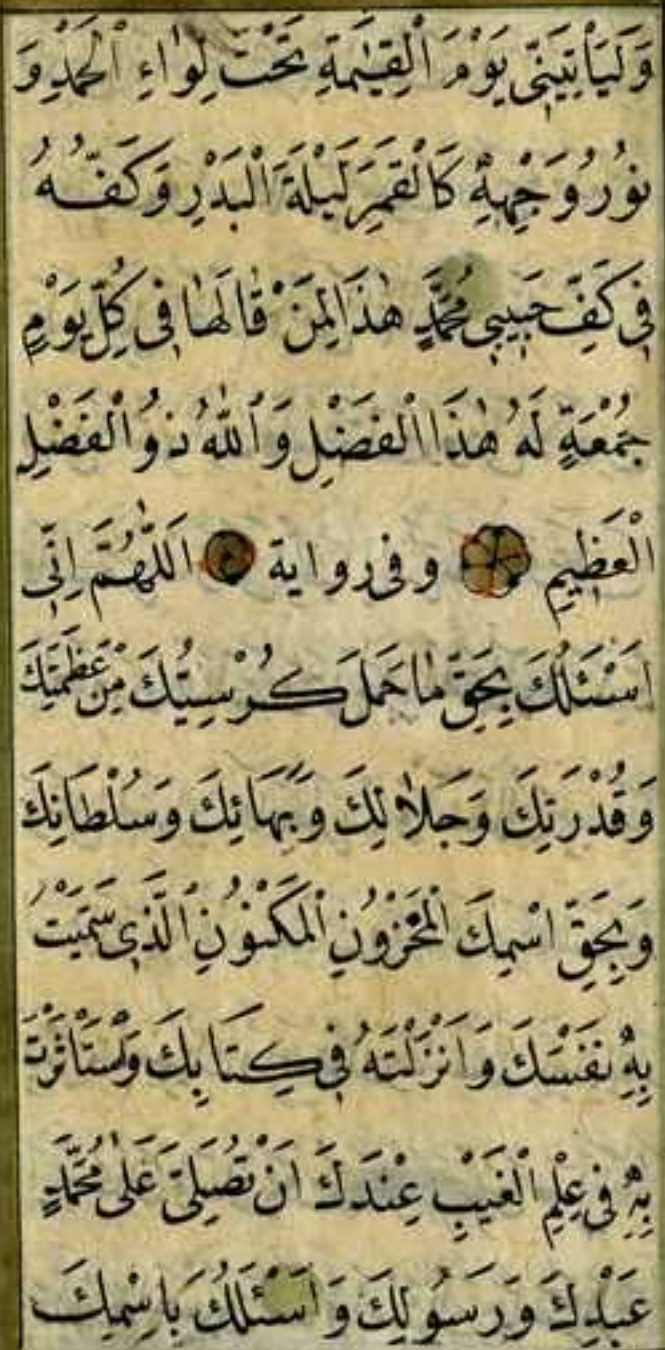 وَلَيَأْتِيَنِّي يَوْمَ الْقِيٰمَةِ تَحْتَ لِوَاءِ الْحَمْدِ وَ
نُورُ وَجْهِهِ كَالْقَمَرِ لَيْلَةَ الْبَدْرِ وَكَفُّهُ
فِي كَفِّ حَبِيبِي مُحَمَّدٍ هٰذَا لِمَنْ قَالَهَا فِي كُلِّ يَوْمِ
جُمْعَةٍ لَهُ هٰذَا الْفَضْلِ وَاللّٰهُ ذُو الْفَضْلِ
الْعَظِيمِ وفى رواية اَللّٰهُمَّ اِنِّي
اَسْئَلُكَ بِحَقِّ مَا حَمَلَ كُرْسِيُّكَ مِنْ عَظَمَتِكَ
وَقُدْرَتِكَ وَجَلَالِكَ وَبَهَائِكَ وَسُلْطَانِكَ
وَبِحَقِّ اسْمِكَ الْمَخْزُونِ الْمَكْنُونِ الَّذِي سَمَّيْتَ
بِهِ نَفْسَكَ وَاَنْزَلْتَهُ فِي كِتَابِكَ وَاسْتَأْثَرْتَ
بِهِ فِي عِلْمِ الْغَيْبِ عِنْدَكَ اَنْ تُصَلِّيَ عَلٰى مُحَمَّدٍ
عَبْدِكَ وَرَسُولِكَ وَاَسْئَلُكَ بِاسْمِكَ